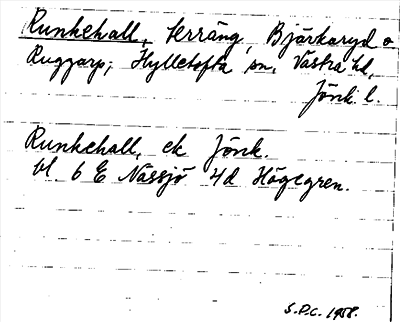 Runkehall, terräng, Björkaryd o
Ruggarp; Hylletofta sn. Västra hd,
Jönk. l.
Runkehall, ek Jönk.
bl. 6 E Nässjö 4d Högegren.
S.D.C. 1958.